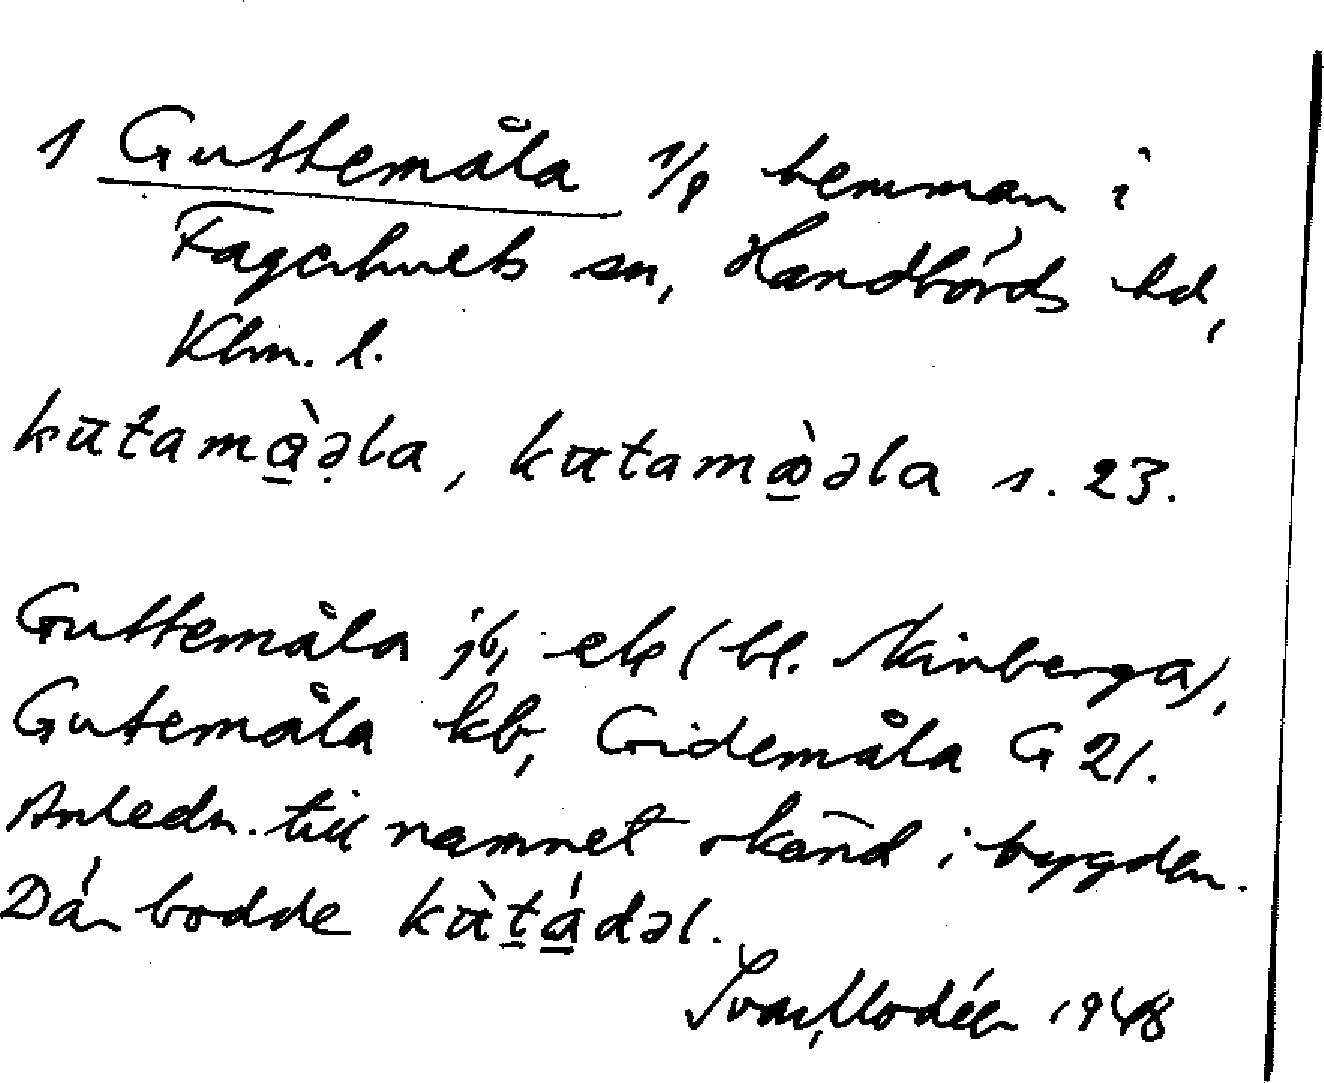 1 Guttemåla 1/8 hemman i
Fagerhults sn, Handbörds hd,
Klm. l.
kutamàəla, kutamàəla s. 23.
Guttemåla jb, ek (bl. Skinberga),
Gutemåla kb, Gidemåla G 21.
Anledn. till namnet okänd i bygden.
Där bodde kùtádəl.
Ivar Modéer 1948